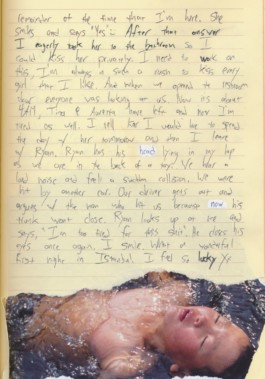 remainder of the time that I'm here. She
smiles and says 'Yes'. After that answer
I eagerly took her to the bathroom so I
could kiss her privately. I need to work on
this, I'm always in such a rush to kiss every
girl that I like. And when we opened to
everyone was looking at us. Now its about
Tina & had left and now I'm
tired as well. I tell her I would like to spend
the day w/ her tomorrow and then I leave
w/ Ryan. Ryan has his head lying in my lap
as we are in the back of a taxi. We hear a
loud noise and feel a sudden collision. We were
hit by another car. Our driver gets out and
argues w/ the man who hit us because now his
trunk wont close. Ryan looks up at me and
says, "I'm too tired for this shit". He closes his
eyes once again. I smile. What a wonderful
first night in Istanbul. I feel so lucky